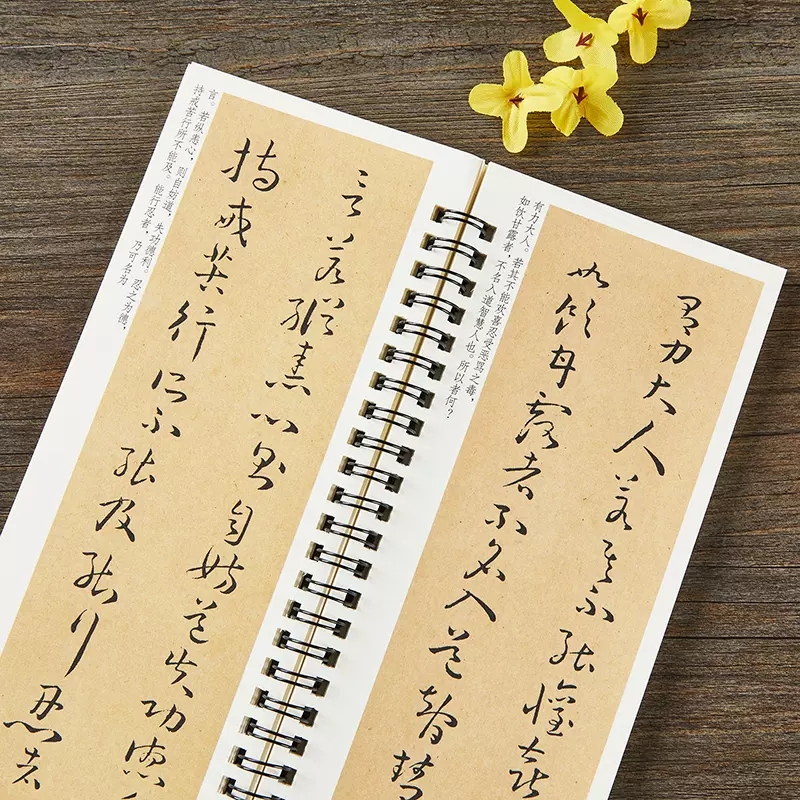 言若縱恚心则自妨道失功德
持戒苦行所不能及能行忍者
言。若纵恚心，则自妨道，失功德利。忍之为德，
持戒苦行所不能及。能行忍者，乃可名为
有力大人若其不能懽喜
如飲甘露者不名入道智慧
有力大人。若其不能欢喜忍受恶骂之毒，
如饮甘露者，不名入道智慧人也。所以者何？